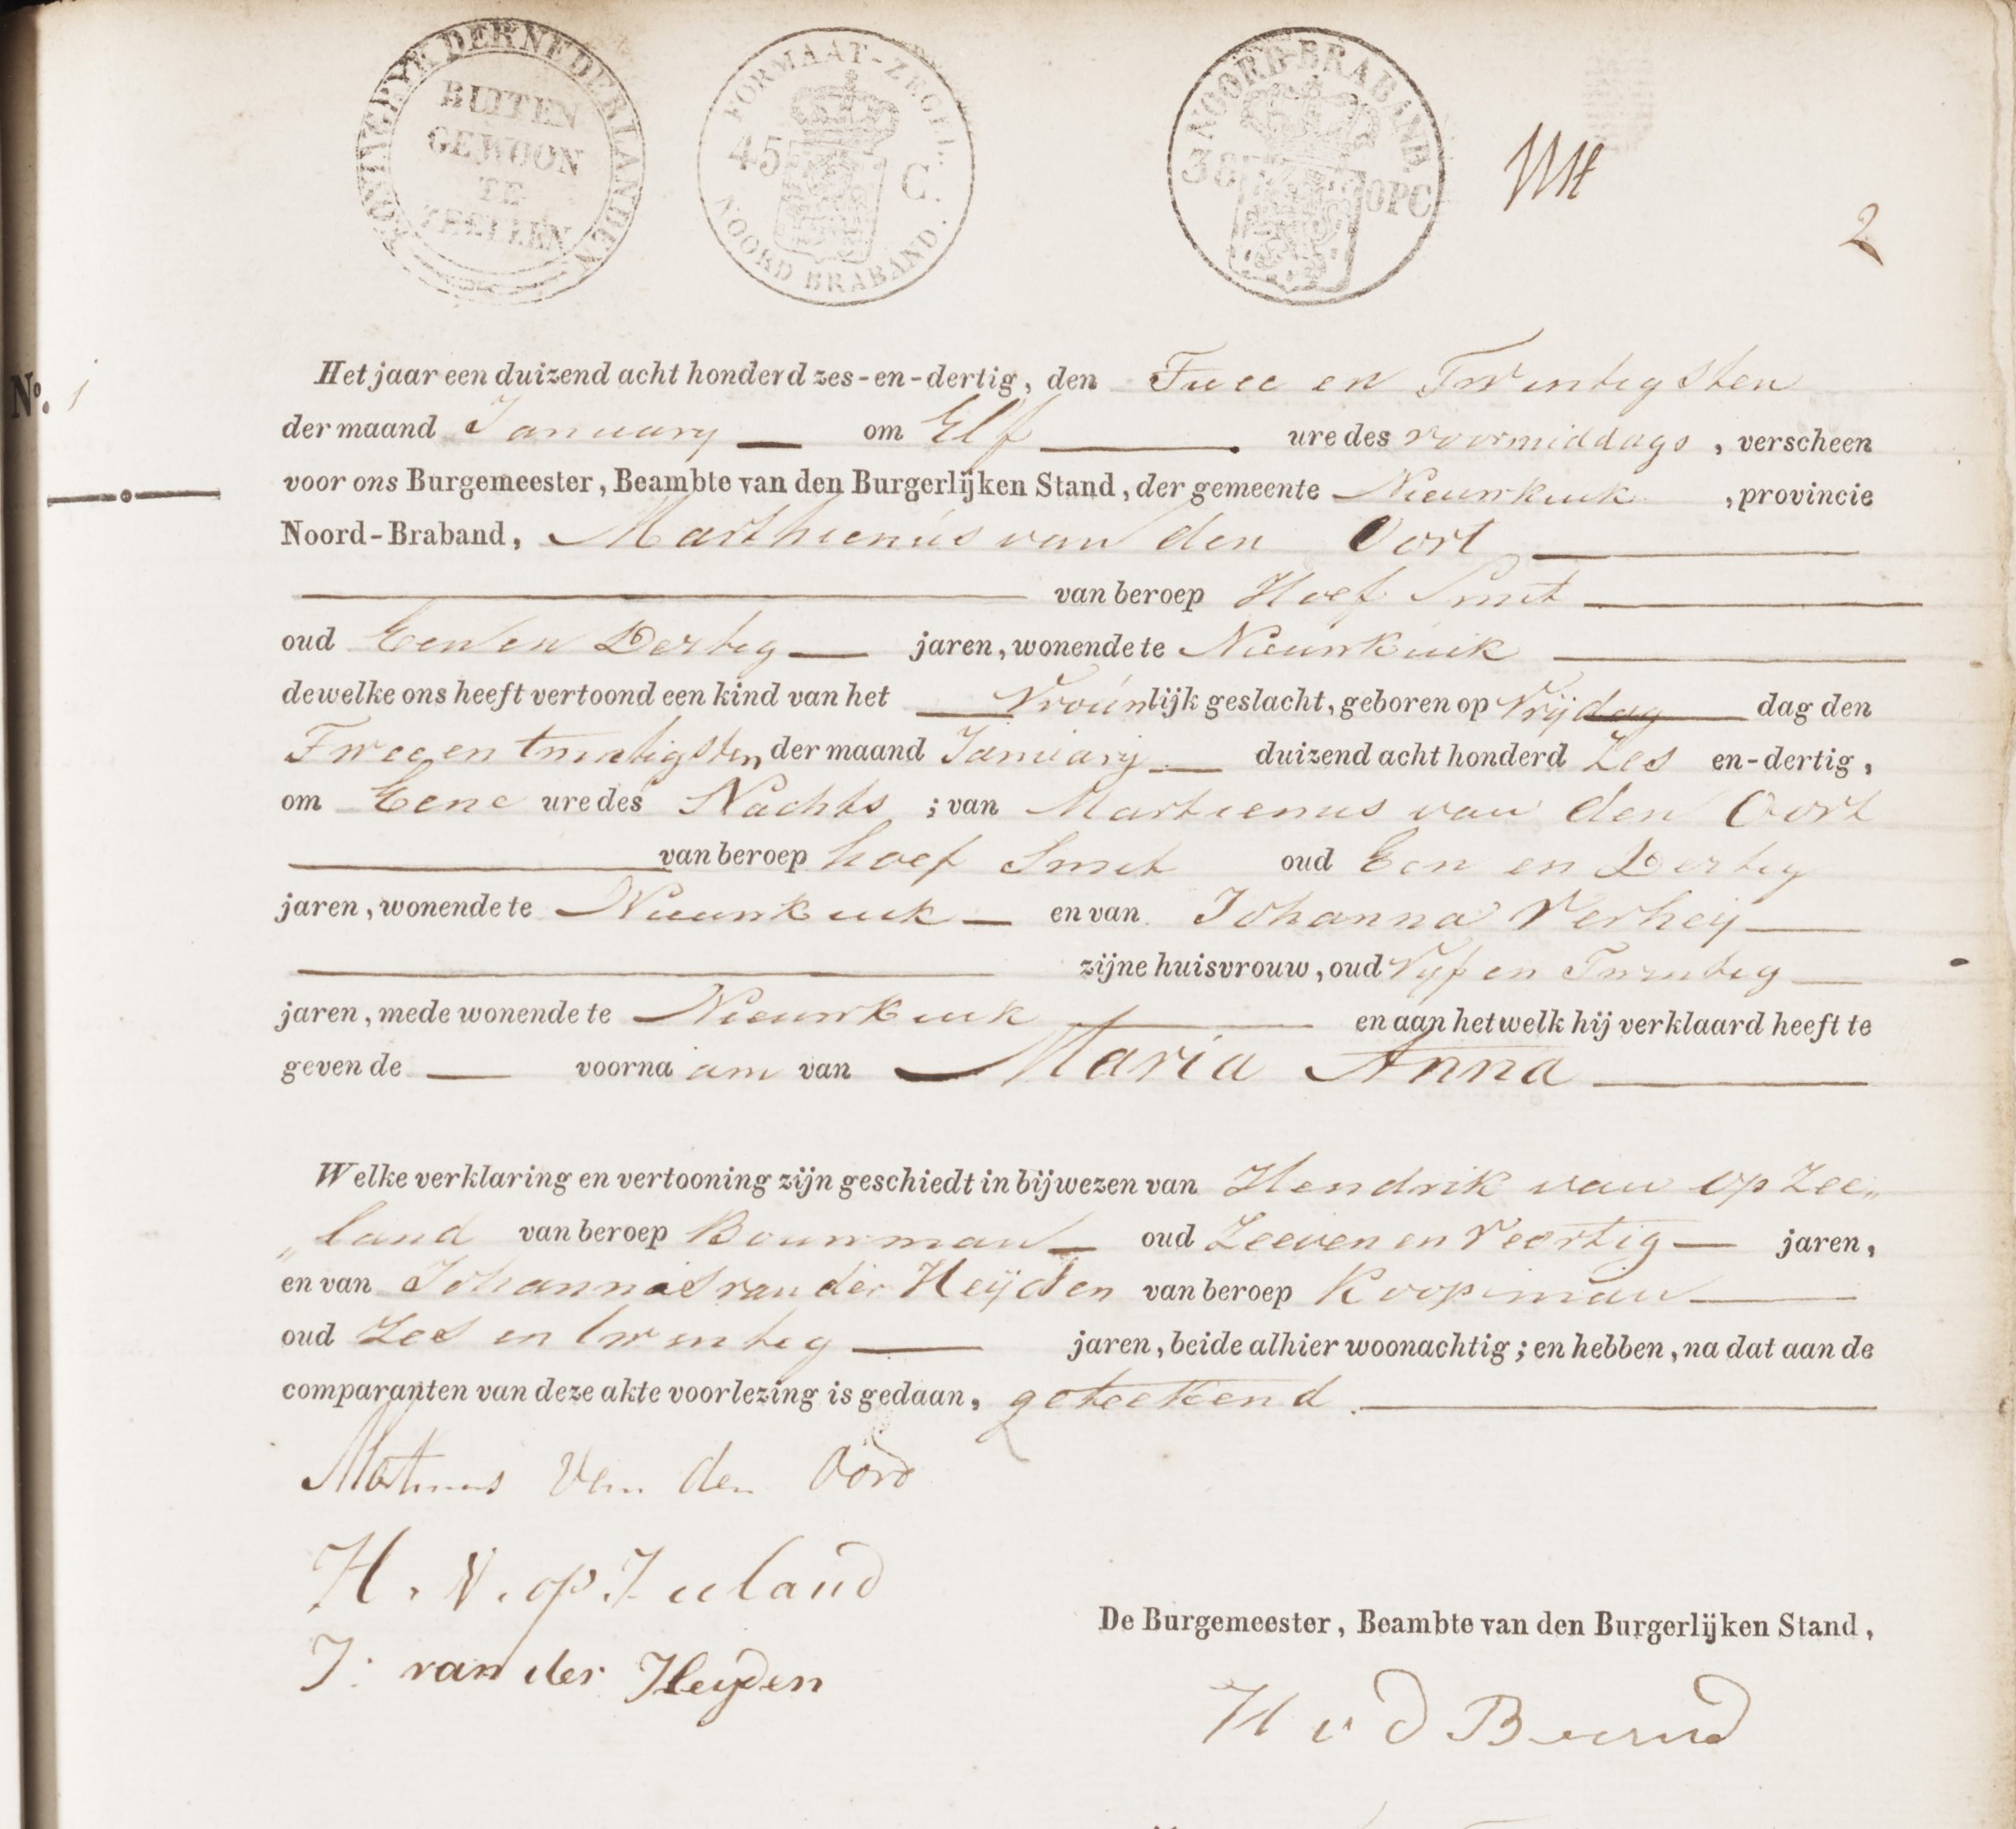 KONINGRYK DER NEDERLANDEN
BUITEN
GEWOON
TE
ZEGELEN
FORMAAT-ZEGEL.
45 C.
NOORD BRABAND.
NOORD-BRABAND.
38 OPC
2
No. 1
Het jaar een duizend acht honderd zes-en-dertig, den Twee en Twintigsten
der maand January om Elf ure des voormiddags, verscheen
voor ons Burgemeester, Beambte van den Burgerlijken Stand, der gemeente Nieuwkuik, provincie
Noord-Braband, Marthienus van den Oort
van beroep Hoef Smit
oud Een en Dertig jaren, wonende te Nieuwkuik
dewelke ons heeft vertoond een kind van het Vrouwlijk geslacht, geboren op Vrijdag dag den
Twee en twintigsten der maand January duizend acht honderd Zes en-dertig,
om Eene ure des Nachts; van Martienus van den Oort
van beroep hoef Smit oud Een en Dertig
jaren, wonende te Nieuwkuik en van Johanna Verheij
zijne huisvrouw, oud Vijf en Twintig
jaren, mede wonende te Nieuwkuik en aan hetwelk hij verklaard heeft te
geven de voornaam van Maria Anna
Welke verklaring en vertooning zijn geschiedt in bijwezen van Hendrik van op Zee„
„land van beroep Bouwman oud Zeeven en Veertig jaren,
en van Johannes van der Heijden van beroep Koopman
oud Zes en twintig jaren, beide alhier woonachtig; en hebben, na dat aan de
comparanten van deze akte voorlezing is gedaan, geteekend.
Matinus Van den Oord
H. V. op Zeeland
J: van der Heyden
De Burgemeester, Beambte van den Burgerlijken Stand,
H v d